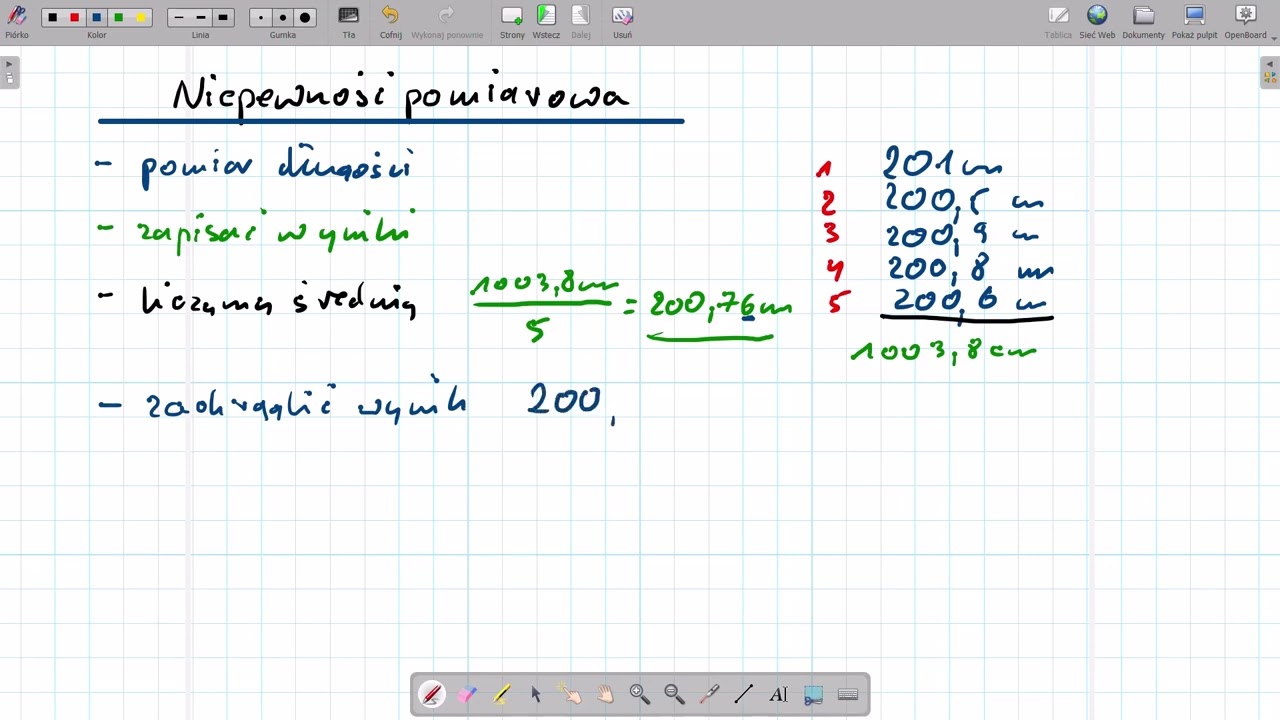 Piórko Kolor Linia Gumka Tła Cofnij Wykonaj ponownie Strony Wstecz Dalej Usuń Tablica Sieć Web Dokumenty Pokaż pulpit OpenBoard
Niepewność pomiarowa
- pomiar długości
- zapisać wyniki
- liczymy średnią 1003,8 cm / 5 = 200,76 cm
- zaokrąglić wynik 200,
1 201 cm
2 200,5 cm
3 200,9 cm
4 200,8 cm
5 200,6 cm
1003,8 cm
AI